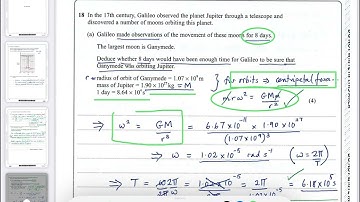 18 In the 17th century, Galileo observed the planet Jupiter through a telescope and
discovered a number of moons orbiting this planet.
(a) Galileo made observations of the movement of these moons for 8 days.
The largest moon is Ganymede.
Deduce whether 8 days would have been enough time for Galileo to be sure that
Ganymede was orbiting Jupiter.
r = radius of orbit of Ganymede = 1.07 × 10⁹ m
mass of Jupiter = 1.90 × 10²⁷ kg = M
1 day = 8.64 × 10⁴ s
for orbits ⇒ centripetal force
m r ω² = GMm / r²
(4)
⇒ ω² = GM / r³ = 6.67 × 10⁻¹¹ × 1.90 × 10²⁷ / (1.07 × 10⁹)³
⇒ ω = 1.02 × 10⁻⁵ rad s⁻¹ (ω = 2π / T)
⇒ T = 2π / ω = 2π / = 6.18 × 10⁵